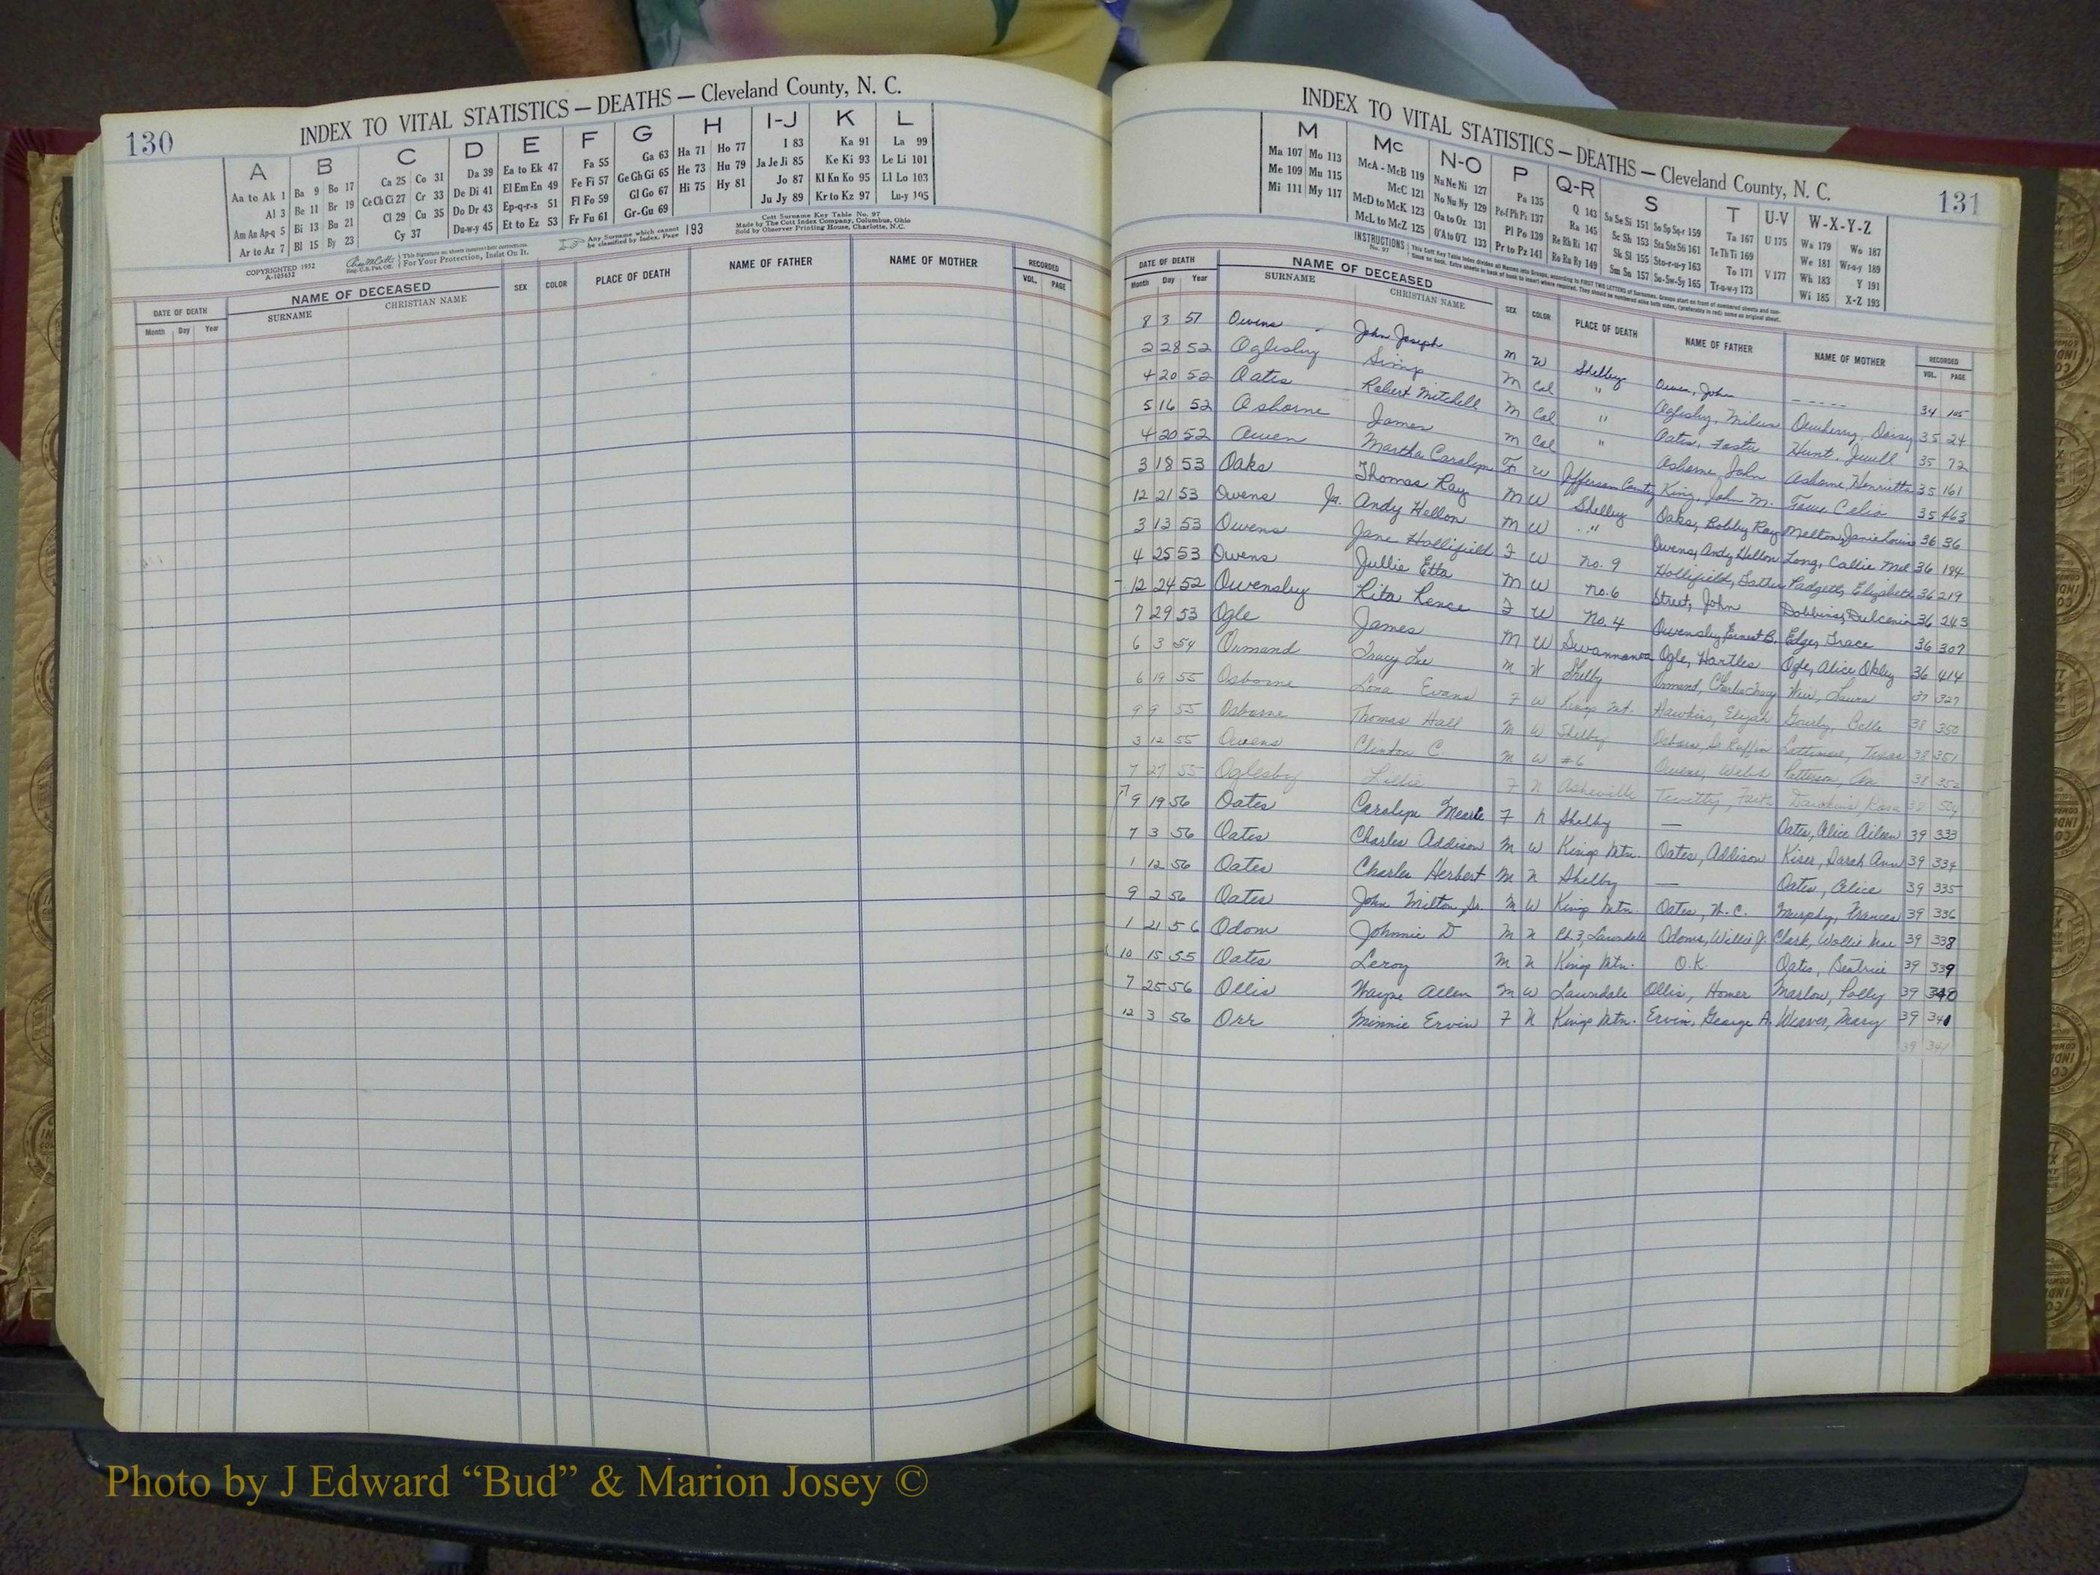 130
INDEX TO VITAL STATISTICS — DEATHS — Cleveland County, N. C.
A B C D E F G H I-J K L
Aa to Ak 1 Ba 9 Bo 17 Ca 25 Co 31 Da 39 Ea to Ek 47 Fa 55 Ga 63 Ha 71 Ho 77 I 83 Ka 91 La 99
Al 3 Be 11 Br 19 Ce Ch Ci 27 Cr 33 De Di 41 El Em En 49 Fe Fi 57 Ge Gh Gi 65 He 73 Hu 79 Ja Je Ji 85 Ke Ki 93 Le Li 101
Am An Ap-q 5 Bi 13 Bu 21 Cl 29 Cu 35 Do Dr 43 Ep-q-r-s 51 Fl Fo 59 Gl Go 67 Hi 75 Hy 81 Jo 87 Kl Kn Ko 95 Ll Lo 103
Ar to Az 7 Bl 15 By 23 Cy 37 Du-w-y 45 Et to Ez 53 Fr Fu 61 Gr-Gu 69 Ju Jy 89 Kr to Kz 97 Lu-y 105
COPYRIGHTED 1932
A-105632
This Signature on sheets insures best corrections.
For Your Protection, Insist On It.
Any Surname which cannot be classified by Index, Page 193
Cott Surname Key Table No. 97
Made by The Cott Index Company, Columbus, Ohio
Sold by Observer Printing House, Charlotte, N.C.
DATE OF DEATH NAME OF DECEASED SEX COLOR PLACE OF DEATH NAME OF FATHER NAME OF MOTHER RECORDED
Month Day Year SURNAME CHRISTIAN NAME VOL. PAGE
INDEX TO VITAL STATISTICS — DEATHS — Cleveland County, N. C.
131
M Mc N-O P Q-R S T U-V W-X-Y-Z
Ma 107 Mo 113 McA - McB 119 Na Ne Ni 127 Pa 135 Q 143 Sa Se Si 151 So Sp Sq-r 159 Ta 167 U 175 Wa 179 Wo 187
Me 109 Mu 115 McC 121 No Nu Ny 129 Pe-f Ph Pi 137 Ra 145 Sc Sh 153 Sta Ste Sti 161 Te Th Ti 169 We 181 Wr-u-y 189
Mi 111 My 117 McD to McK 123 Oa to Oz 131 Pl Po 139 Re Rh Ri 147 Sk Sl 155 Sto-r-u-y 163 To 171 V 177 Wh 183 Y 191
McL to McZ 125 O'A to O'Z 133 Pr to Pz 141 Ro Ru Ry 149 Sm Sn 157 Su-Sw-Sy 165 Tr-u-w-y 173 Wi 185 X-Z 193
INSTRUCTIONS No. 97
DATE OF DEATH NAME OF DECEASED SEX COLOR PLACE OF DEATH NAME OF FATHER NAME OF MOTHER RECORDED
Month Day Year SURNAME CHRISTIAN NAME VOL. PAGE
8 3 51 Owens John Joseph M W Shelby Owen, John ----- 34 105
2 28 52 Oglesby Simp M Col " Oglesby, Dewberry, Daisy 35 24
4 20 52 Oates Robert Mitchell M Col " Oates, Foster Hunt, Jewell 35 72
5 16 52 Osborne James M Col " Osborne, John Osborne Henrietta 35 161
4 20 52 Owen Martha Carolyn F W Jefferson County King, John M. 35 463
3 18 53 Oaks Thomas Ray M W Shelby Oaks, Bobby Ray Melton, Janie Louise 36 36
12 21 53 Owens Jr. Andy Hellon M W " Owens, Andy Hellon Long, Callie Mae 36 184
3 13 53 Owens Jane Hollifield F W No. 9 Hollifield, Padgett, Elizabeth 36 219
4 25 53 Owens Jullie Etta M W No. 6 Street, John Dobbins, Dulcenia 36 243
12 24 52 Owensby Rita Renee F W No. 4 Owensby, Ernest B. Edge, Grace 36 307
7 29 53 Ogle James M W Swannanoa Ogle, Hartles Ogle, Alice 36 414
6 3 54 Ormand Tracy Lee M W Shelby Ormand, Charles Tracy Weir, Laura 37 327
6 19 55 Osborne Lona Evans F W Kings Mt. Hawkins, Elijah 38 350
9 9 55 Osborne Thomas Hall M W Shelby Osborn, Lattimore, 38 351
3 12 55 Owens Clinton C. M W #6 Owens, Webb Patterson, 38 352
7 27 55 Oglesby Lillie F N Asheville Dawkins,
9 19 56 Oates Carolyn Mearle F N Shelby — Oates, Alice Aileen 39 333
7 3 56 Oates Charles Addison M W Kings Mtn. Oates, Addison Kiser, Sarah Ann 39 334
1 12 56 Oates Charles Herbert M N Shelby — Oates, Alice 39 335
9 2 56 Oates John Milton, Sr. M W Kings Mtn. Oates, Murphy, Frances 39 336
1 21 56 Odom Johnnie D M N Lawndale Odoms, Willie J. Clark, Mae 39 338
10 15 55 Oates Leroy M N Kings Mtn. O.K. Oates, Beatrice 39 339
7 25 56 Ollis Wayne Allen M W Lawndale Ollis, Homer Marlow, Polly 39 340
12 3 56 Orr Minnie Ervin F N Kings Mtn. Ervin, George A. Weaver, Mary 39 341
39 341
Photo by J Edward “Bud” & Marion Josey ©